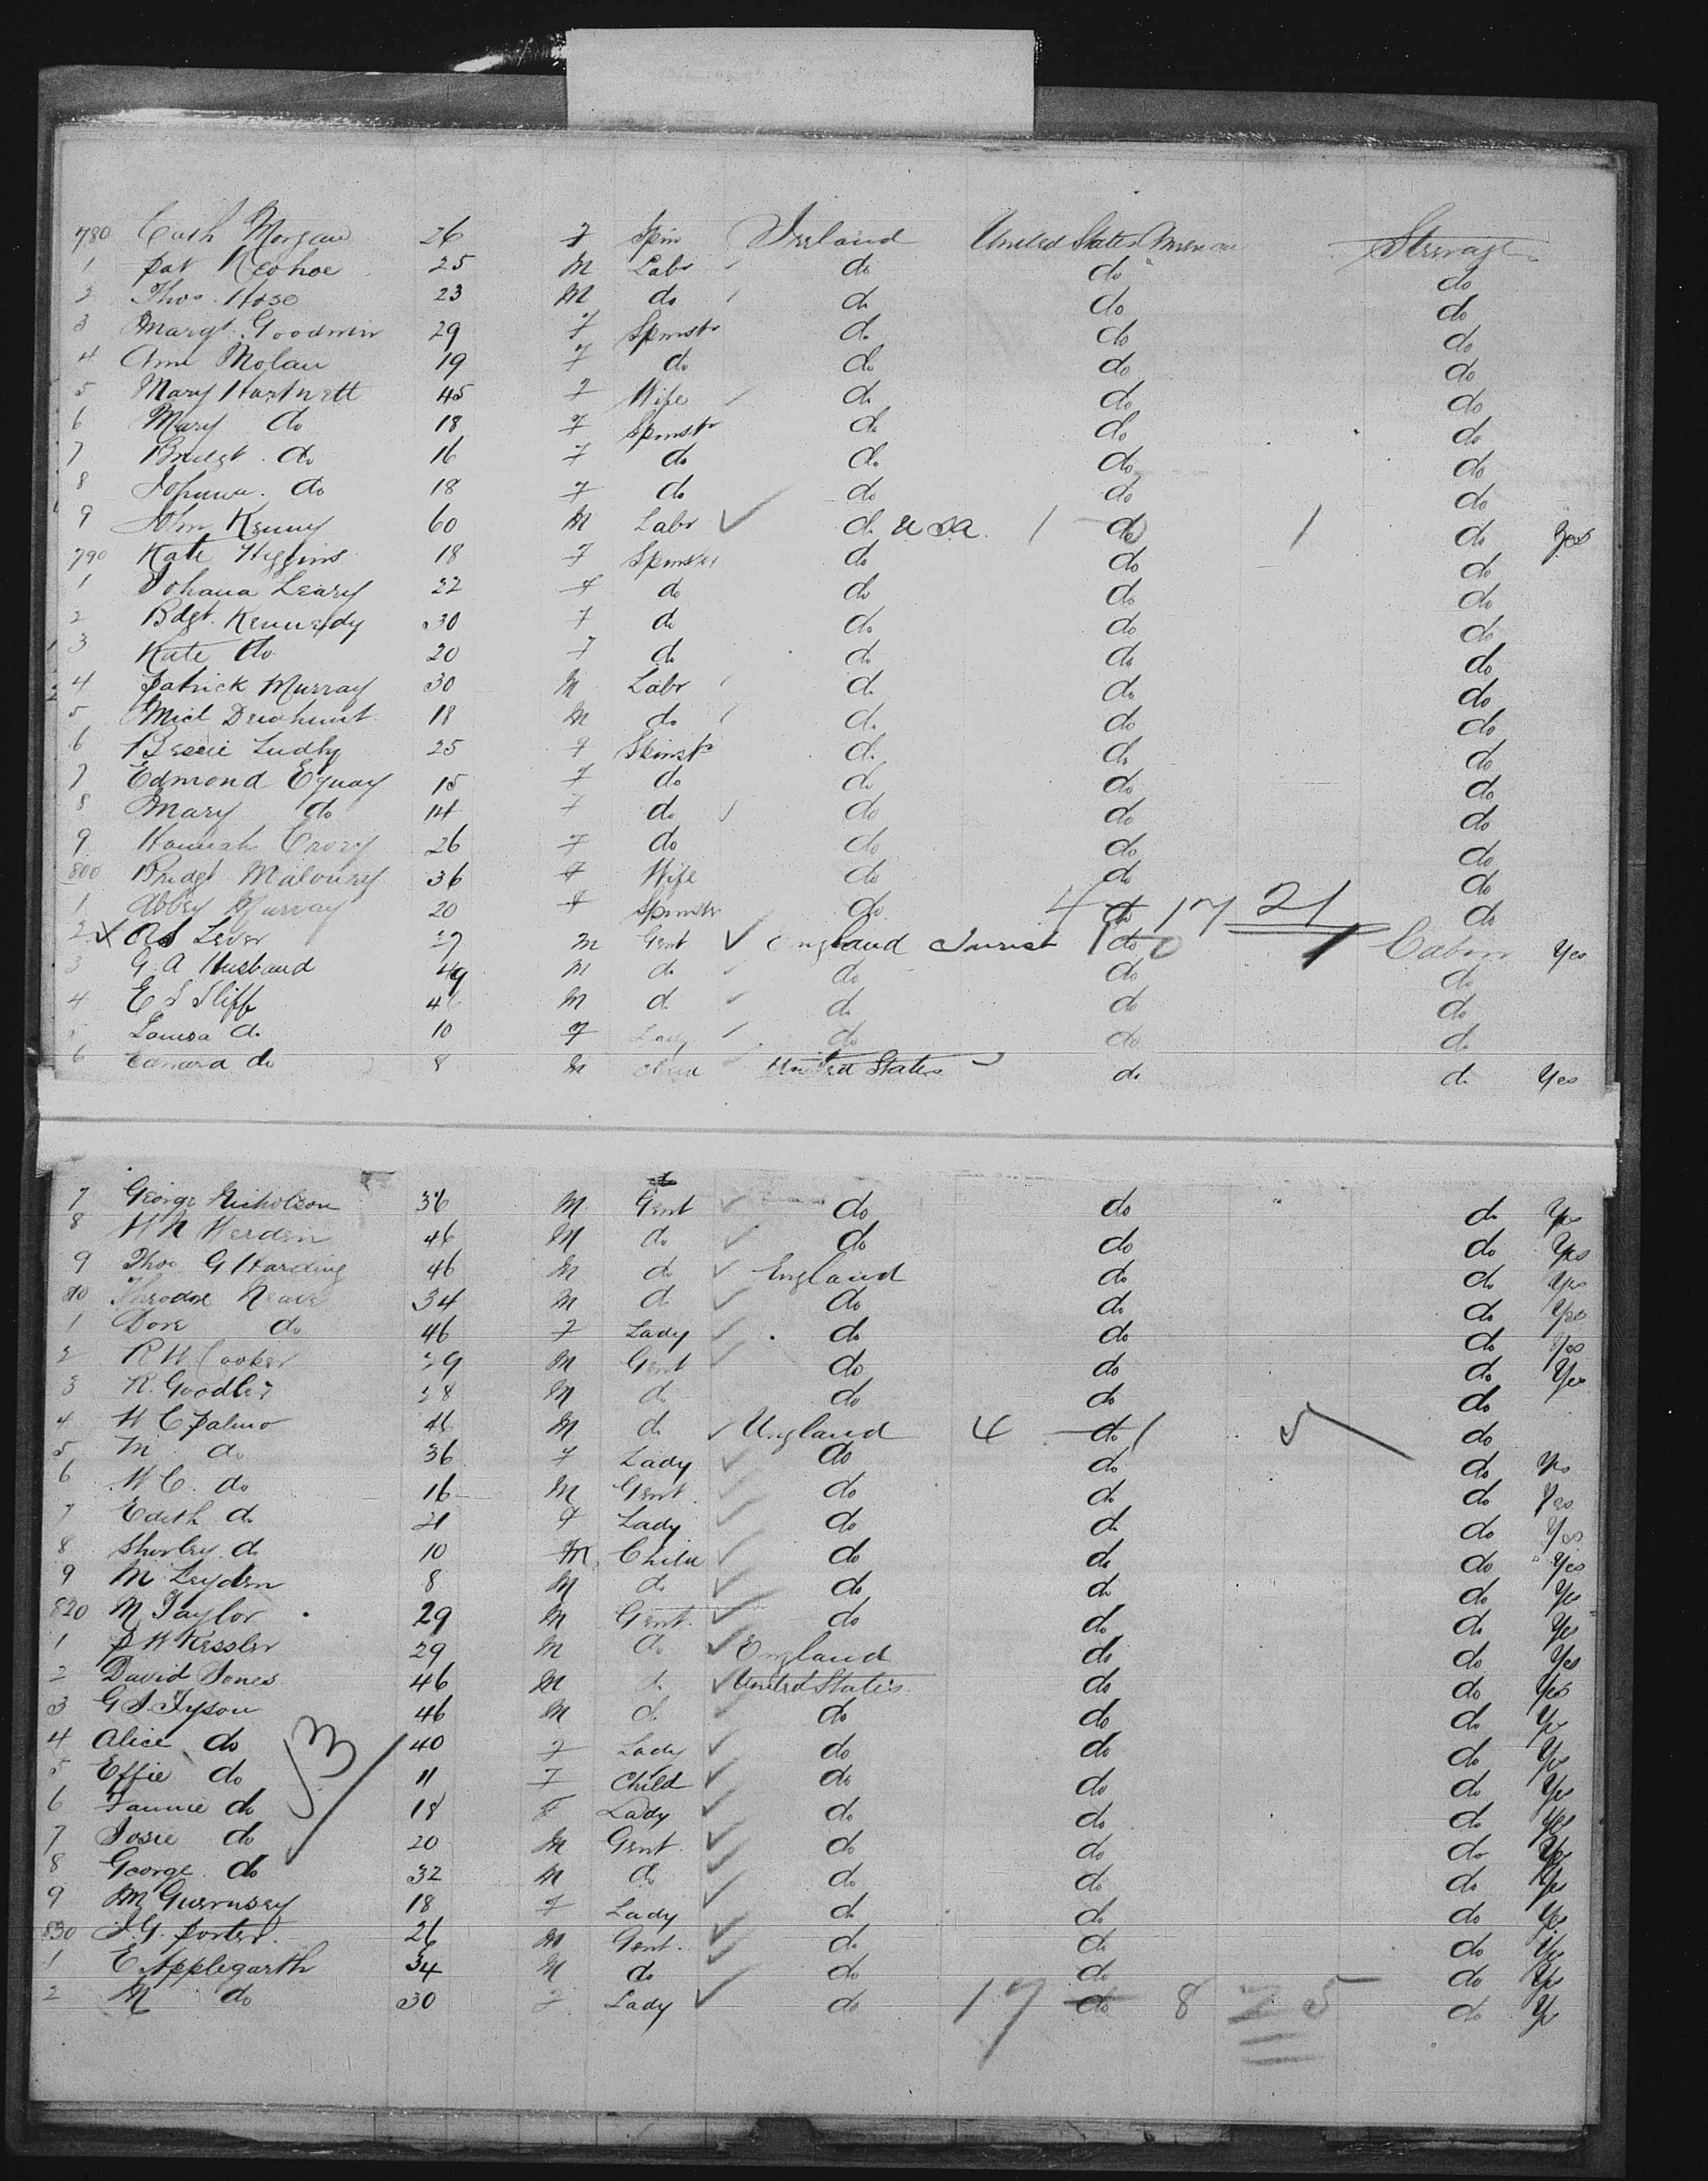 780 Cath Morgan 26 F Spin Ireland United States America Steerage
1 Pat Keohoe 25 M Labr do do do
2 Thos. Hose 23 M do do do do
3 Margt. Goodwin 29 F Spinstr do do do
4 Ann Molan 19 F do do do do
5 Mary Hartnett 45 F Wife do do do
6 Mary do 18 F Spinstr do do do
7 Bridgt. do 16 F do do do do
8 Johana. do 18 F do do do do
9 John Kenny 60 M Labr do USA 1 do 1 do Yes
790 Kate Higgins 18 F Spinster do do do
1 Johana Leary 22 F do do do do
2 Bdgt. Kennedy 30 F do do do do
3 Kate do 20 F do do do do
4 Patrick Murray 30 M Labr do do do
5 Micl Dewhurst 18 M do do do do
6 Bessie Ludly 25 F Spinstr do do do
7 Edmond Eguay 15 F do do do do
8 Mary do 14 F do do do do
9 Hannah Crory 26 F do do do do
800 Bridgt Maloney 36 F Wife do do do
1 Abbey Murray 20 F Spinstr do 4 do 17 21 do
2 Lever 27 M Gent England Tourist 1 do 0 1 Cabin Yes
3 G. A Husband 49 M do do do do
4 E S Iliff M do do do do
5 Louisa do 10 F Lady do do do
6 Edward do 8 M Child United States do do Yes
7 George Nicholson 36 M Gent do do do Yes
8 W N Werden 46 M do do do do Yes
9 Thos G Harding 46 M do England do do Yes
810 Theodore Neave 34 M do do do do Yes
1 Dora do 46 F Lady do do do Yes
2 R W Cooker 29 M Gent do do do Yes
3 R. Goodler 28 M do do do do
4 W C Palmo 46 M do England 4 do 1 5 do
5 M do 36 F Lady do do do Yes
6 W C. do 16 M Gent. do do do Yes
7 Edith do 21 F Lady do do do Yes
8 Shirley do 10 M Child do do do Yes
9 M Leyden 8 M do do do do Yes
820 M Taylor 29 M Gent. do do do Yes
1 P W Kessler 29 M do England do do Yes
2 David Jones 46 M do United States do do Yes
3 G S Tyson 46 M do do do do Yes
4 Alice do 40 F Lady do do do Yes
5 Effie do 11 F Child do do do Yes
6 Fannie do 18 F Lady do do do Yes
7 Josie do 20 M Gent. do do do Yes
8 George do 32 M do do do do Yes
9 M Guernsey 18 F Lady do do do Yes
830 J. G. Porter. 26 M Gent. do do do Yes
1 E. Applegarth 34 M do do do do Yes
2 M do 30 F Lady do 17 do 8 25 do Yes